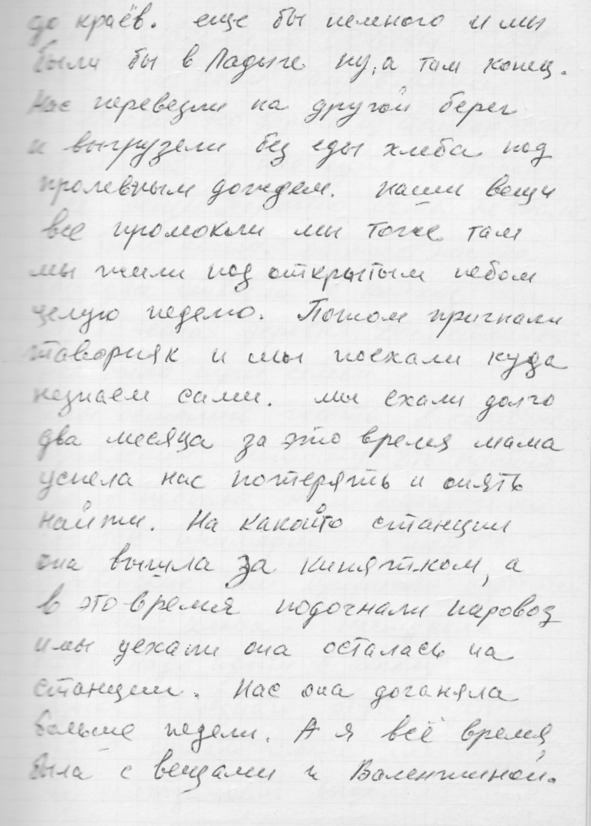 до краёв. еще бы немного и мы
были бы в Ладыге ну, а там конец.
Нас перевезли на другой берег
и выгрузели без еды хлеба под
проливным дождем. наши вещи
все промокли мы тоже там
мы жили под открытым небом
целую неделю. Потом пригнали
товорняк и мы поехали куда
незнаем сами. мы ехали долго
два месяца за это время мама
успела нас потерять и опять
найти. На какойто станции
она вышла за кипятком, а
в это время подогнали паровоз
и мы уехали она осталась на
станции. Нас она доганяла
больше недели. А я всё время
была с вещами и Валентиной.